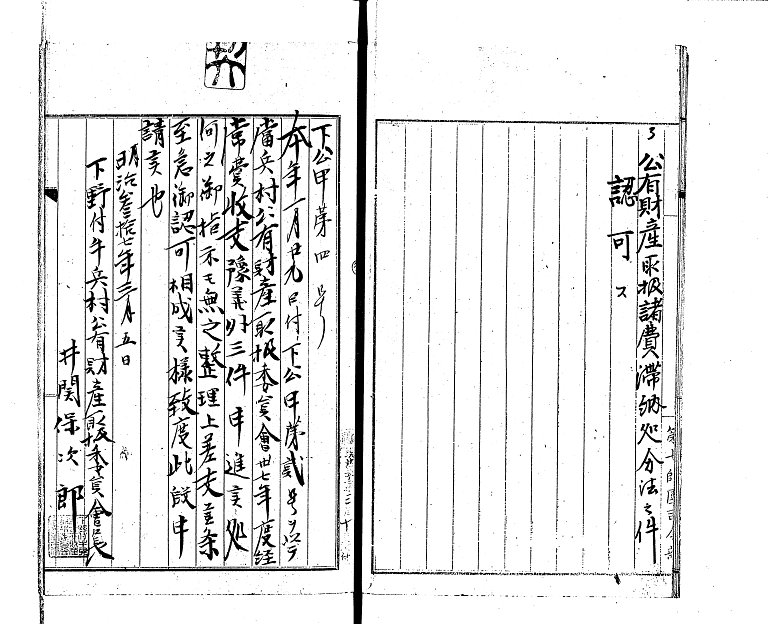 3 公有財産取扱諸費滞納処分法之件
認可ス
下公甲第四号
本年一月廿九日付下公甲第貳号ヲ以テ
当兵村公有財産取扱委員会卅七年度経
常費収支予算外三件申進候処
何之御指示モ無之整理上差支候条
至急御認可相成候様致度此段申
請候也
明治参拾七年三月五日
下野付牛兵村公有財産取扱委員会長
井関保次郎